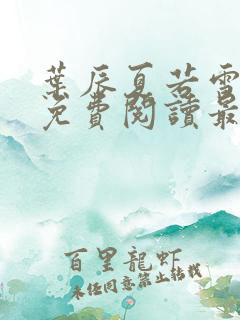 葉辰夏若雪
免費閱讀最
百里龍虾
未任同意禁止转载